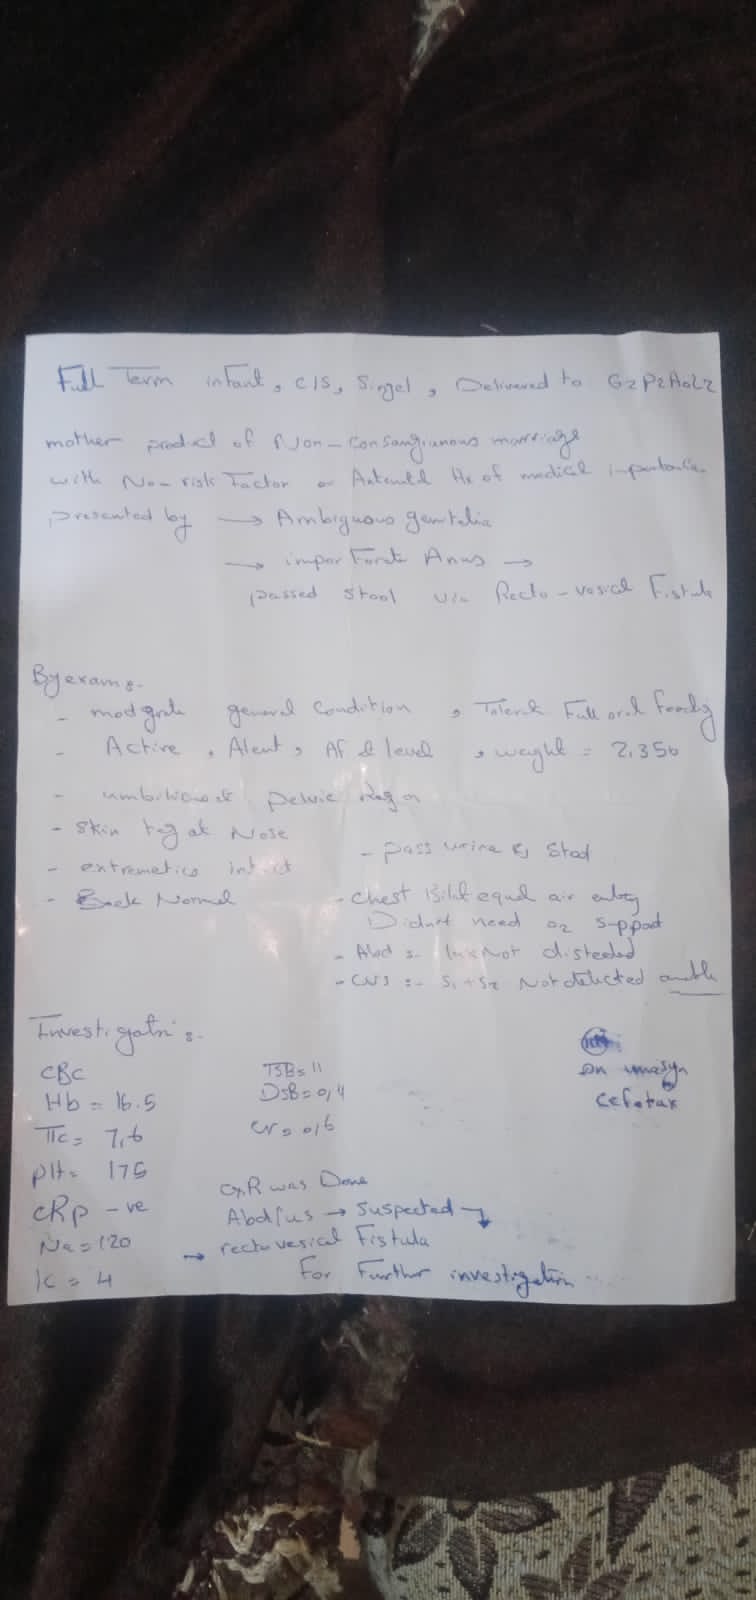 Full Term infant, C/S, Singel, Delivered to G2P2A0L2
mother product of Non-consanguanous marriage
with No-risk Factor or Antenatal Hx of medical importance
presented by → Ambiguous genitalia
→ imperforate Anus →
passed stool via Recto-vesical Fistula
By exam:-
- general condition, Tolerate Full oral feeding
- Active, Alert, AF at level, weight = 2,350
- pelvic region
- Skin tag at Nose
- extremetics intact
- Back Normal
- pass urine & Stool
- Chest Bilat equal air entry
Didn't need O2 support
- Abd :- Not distended
- CVS :- S1+S2 Not detected
Investigatn :-
CBC
Hb = 16.5
Tlc = 7,6
plt = 175
CRp -ve
Na = 120
K = 4
TSB = 11
DSB = 0,4
Cr = 0,6
CXR was Done
Abd/us → suspected
→ recto vesical Fistula
For Further investigation
on unasyn
Cefotax